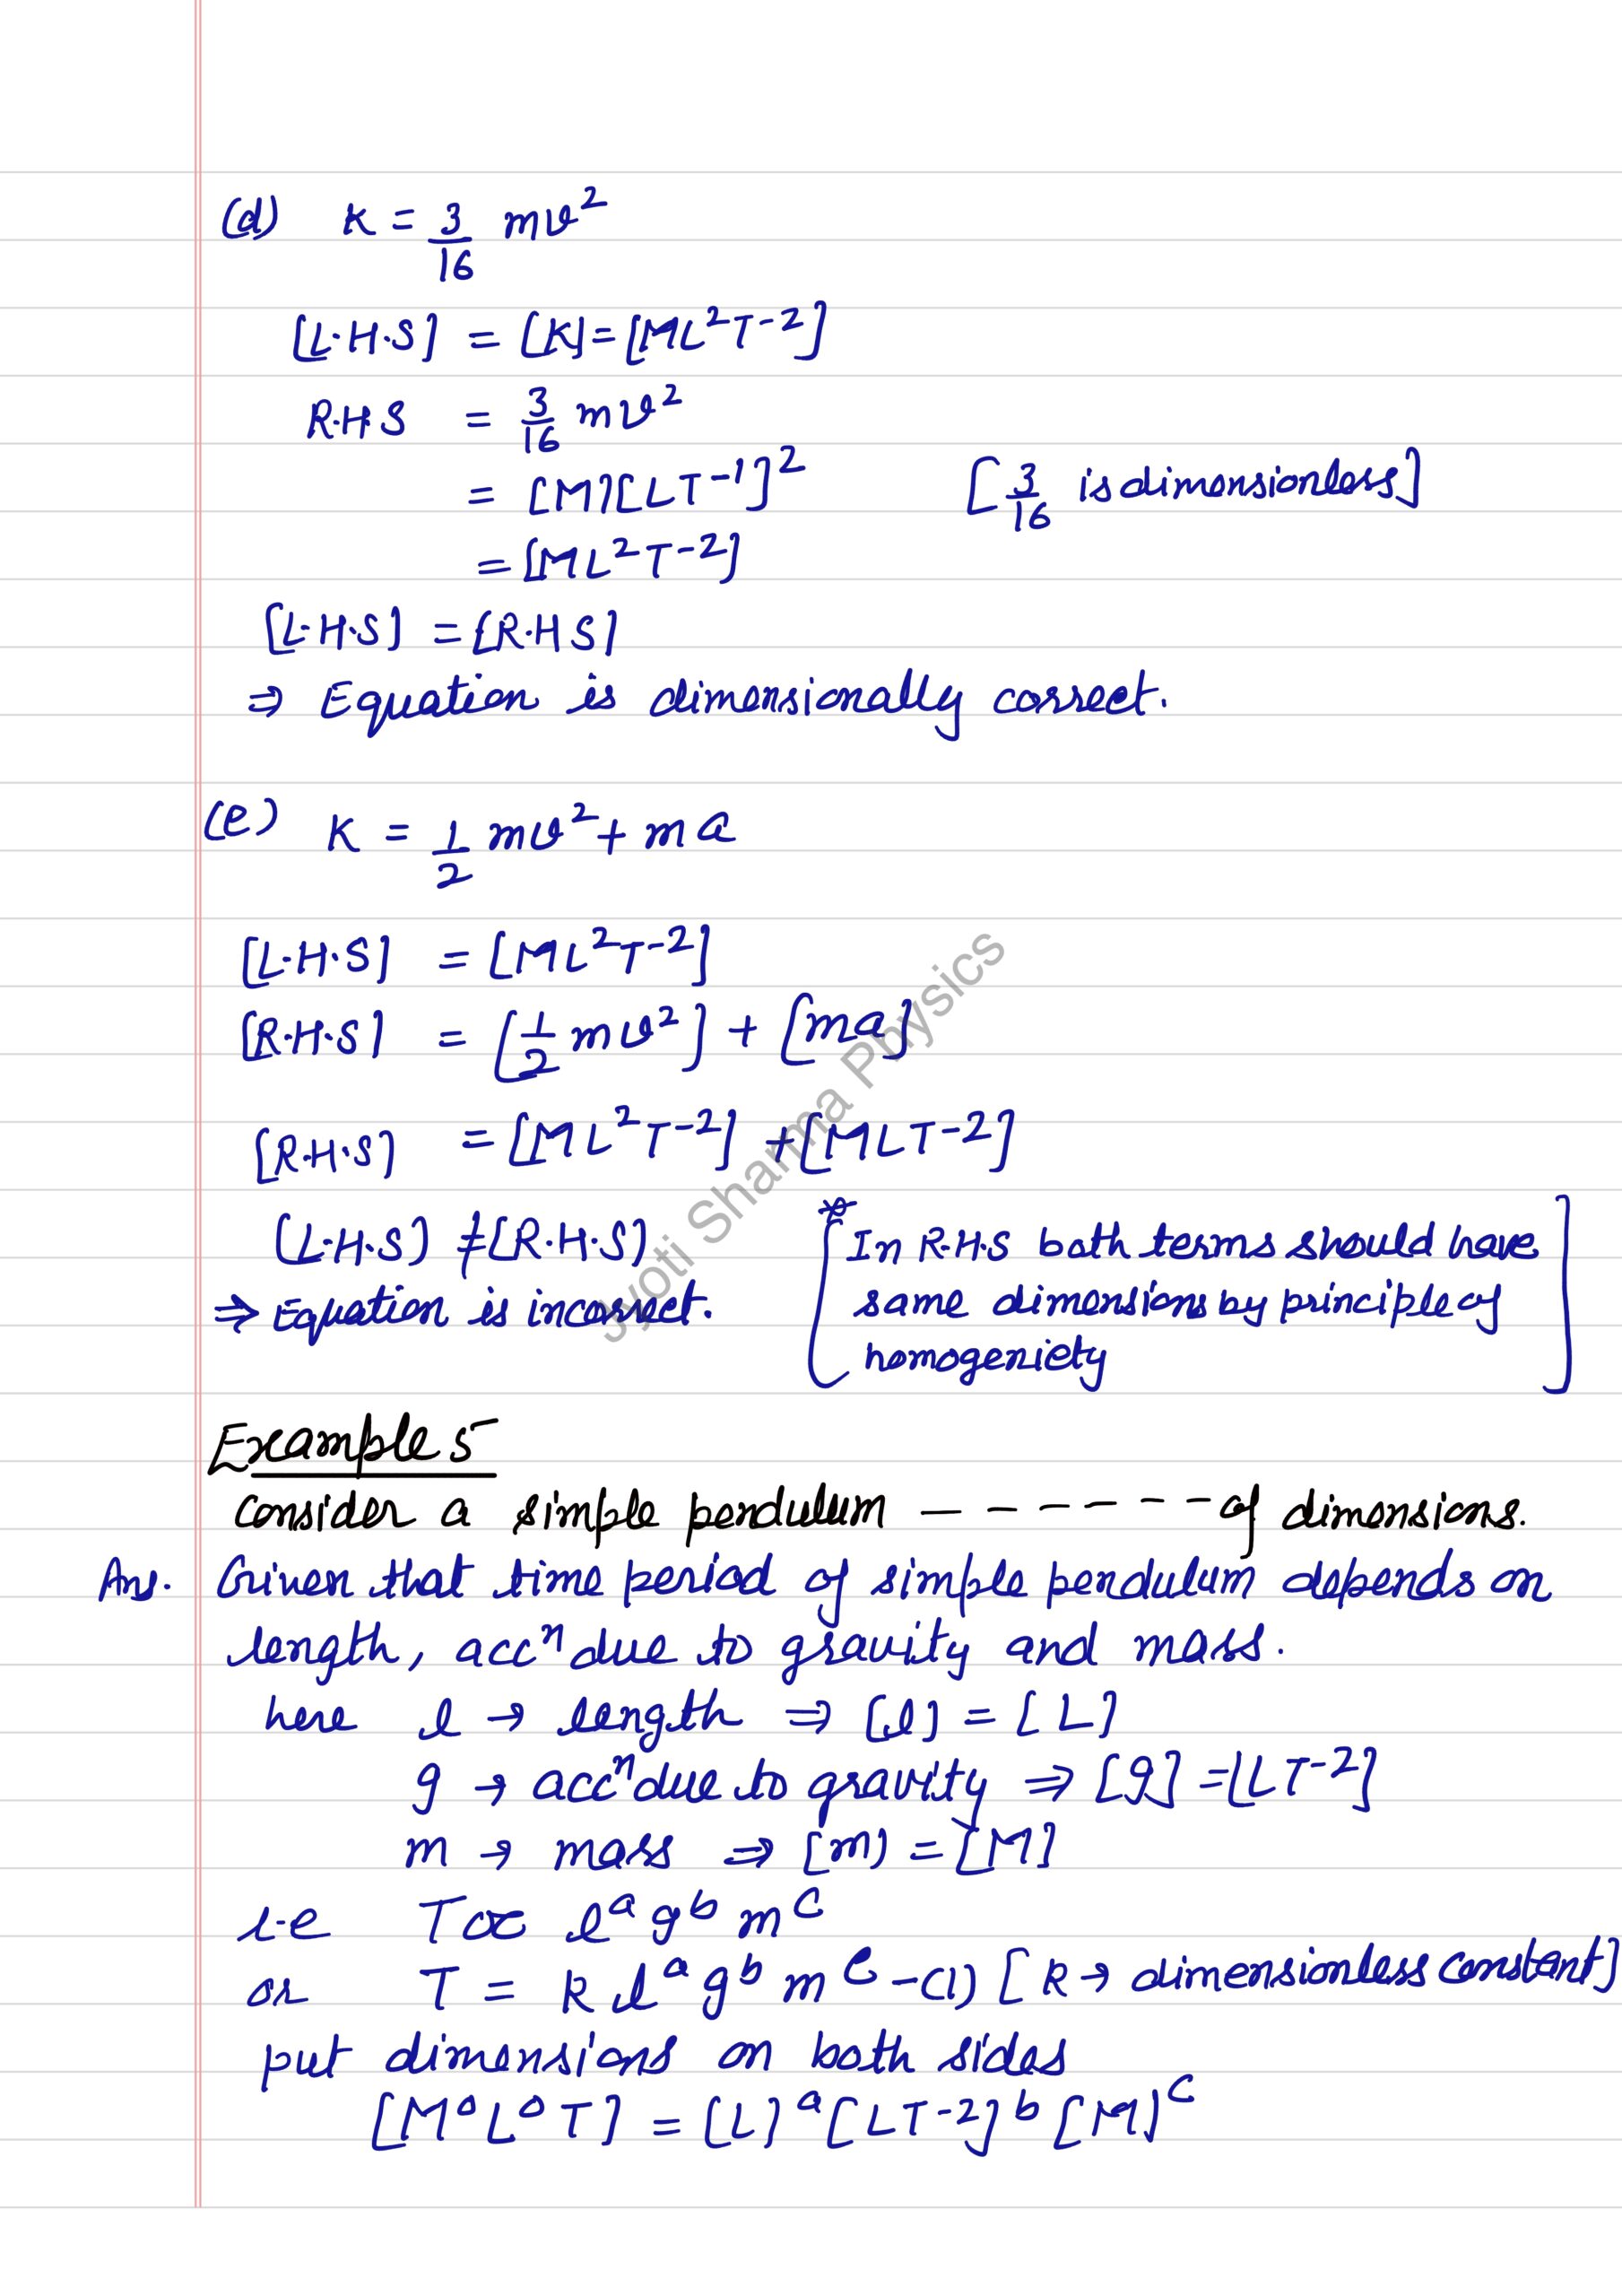 (d) K = 3/16 mv²
[L.H.S] = [K] = [ML²T⁻²]
R.H.S = 3/16 mv²
= [M][LT⁻¹]² [3/16 is dimensionless]
= [ML²T⁻²]
[L.H.S] = [R.H S]
⇒ Equation is dimensionally correct.
(e) K = 1/2 mv² + ma
[L.H.S] = [ML²T⁻²]
[R.H.S] = [1/2 mv²] + [ma]
[R.H.S] = [ML²T⁻²] + [MLT⁻²]
(L.H.S) ≠ [R.H.S)
⇒ Equation is incorrect.
* [In R.H.S both terms should have
same dimensions by principle of
homogeniety]
Jyoti Sharma Physics
Example 5
Consider a simple pendulum - - - - - - of dimensions.
Ans. Given that time period of simple pendulum depends on
length, accⁿ due to gravity and mass.
here l → length ⇒ [l] = [L]
g → accⁿ due to gravity ⇒ [g] = [LT⁻²]
m → mass ⇒ [m] = [M]
i.e T ∝ lᵃ gᵇ mᶜ
or T = k lᵃ gᵇ mᶜ -(1) [k → dimensionless constant]
put dimensions on both sides
[M⁰L⁰T] = [L]ᵃ [LT⁻²]ᵇ [M]ᶜ